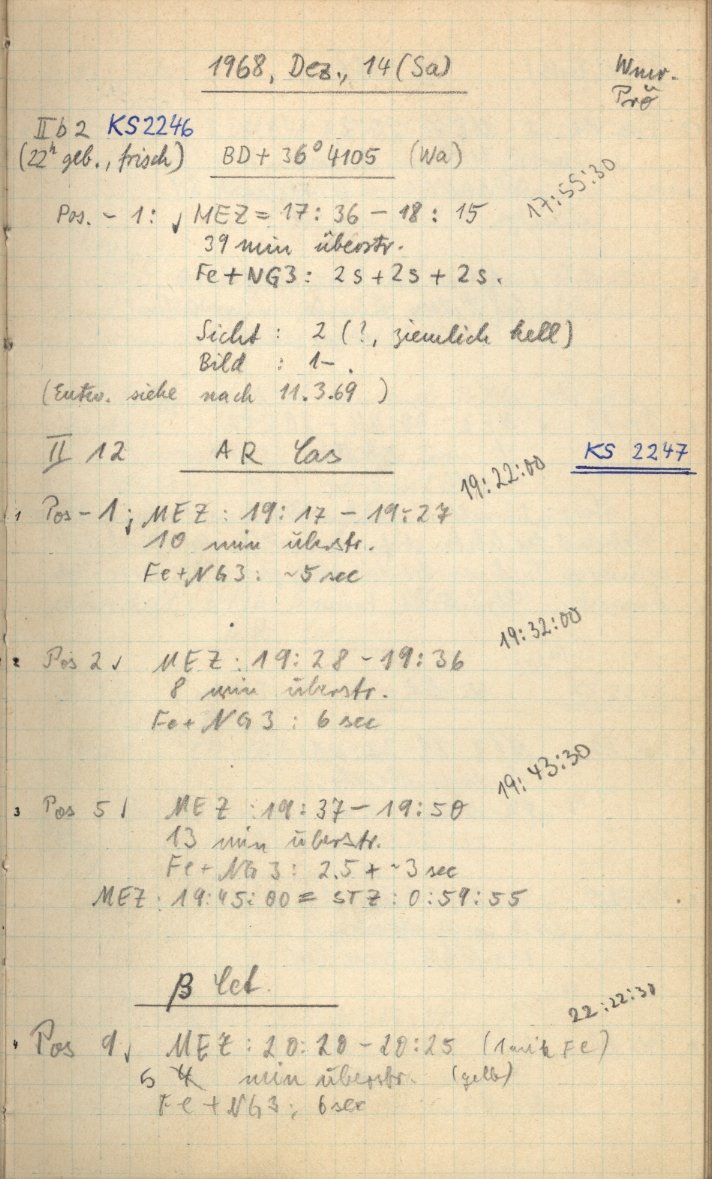 1968, Dez., 14 (Sa)
Wmr.
Prö
II b 2 KS 2246
(22h geb., frisch) BD + 36° 4105 (Wa)
17:55:30
Pos. - 1: ↓ MEZ = 17:36 - 18:15
39 min überstr.
Fe + NG3: 2s + 2s + 2s.
Sicht : 2 (!, ziemlich hell)
Bild : 1- .
(Entw. siehe nach 11.3.69 )
II 12 AR Cas KS 2247
19:22:00
1 Pos - 1; ↓ MEZ : 19:17 - 19:27
10 min überstr.
Fe+NG3: ~5 sec
19:32:00
2 Pos 2 ↓ MEZ : 19:28 - 19:36
8 min überstr.
Fe + NG 3 : 6 sec
19:43:30
3 Pos 5 ↓ MEZ : 19:37 - 19:50
13 min überstr.
Fe + NG 3: 2.5 + ~3 sec
MEZ : 19:45:00 = STZ : 0:59:55
β Cet.
22:22:30
4 Pos 9 ↓ MEZ : 20:20 - 20:25 ( Fe)
5 min überstr. (gelb)
Fe + NG3; 6 sec